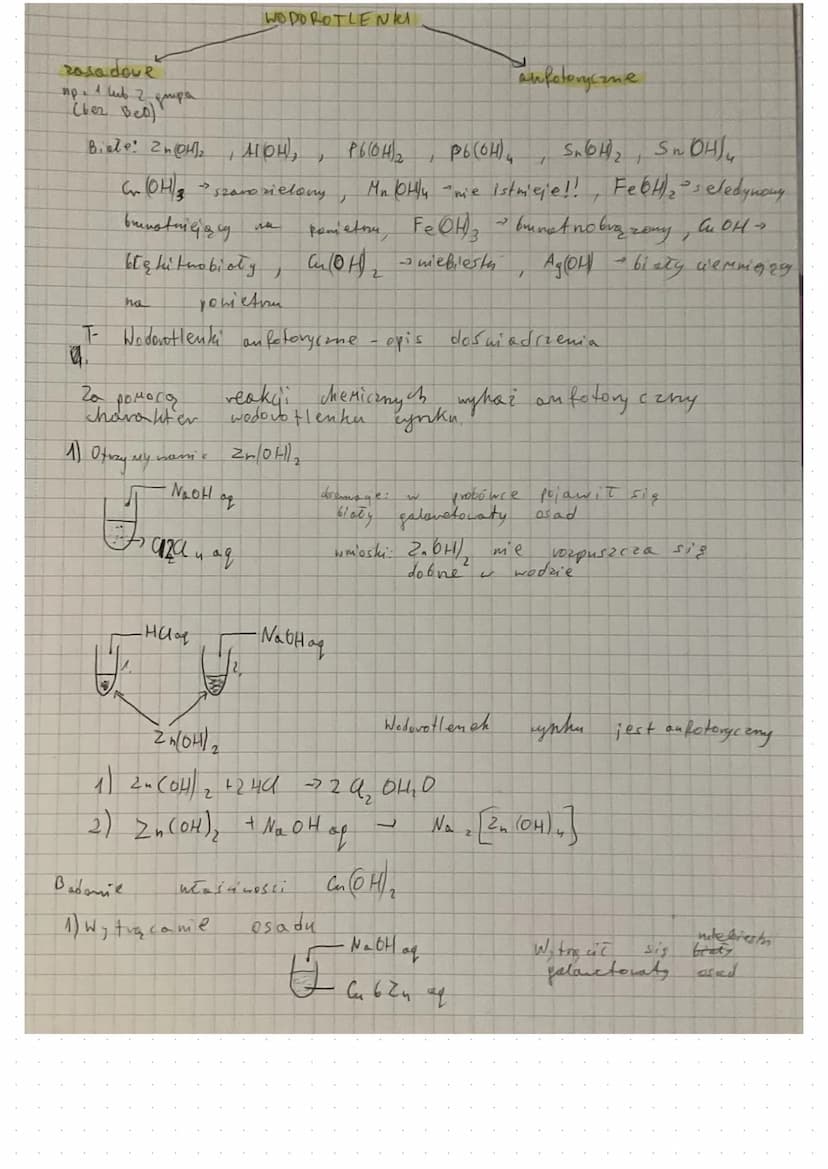 WODOROTLENKI
zasadowe
amfoteryczne
np. 1 lub 2 grupa
(bez BeO)
Białe: Zn(OH)₂ , Al(OH)₃ , Pb(OH)₂ , Pb(OH)₄ , Sn(OH)₂ , Sn(OH)₄
Cr(OH)₃ → szarozielony, Mn(OH)₄ → nie istnieje!! , Fe(OH)₂ → seledynowy
brunatniejący na powietrzu, Fe(OH)₃ → brunatnobrązowy, CuOH →
błękitnobiały , Cu(OH)₂ → niebieski , Ag(OH) → biały ciemniejący
na powietrzu
T- Wodorotlenki amfoteryczne - opis doświadczenia
Za pomocą reakcji chemicznych wykaż amfoteryczny
charakter wodorotlenku cynku.
1) Otrzymywanie Zn(OH)₂
NaOH aq
obserwacje: w probówce pojawił się
biały galaretowaty osad
aq
wnioski: Zn(OH)₂ nie rozpuszcza się
dobrze w wodzie
HCl aq
NaOH aq
1.
2.
Zn(OH)₂
Wodorotlenek cynku jest amfoteryczny
1) Zn(OH)₂ + 2HCl → 2Cl₂ OH₂O
2) Zn(OH)₂ + NaOH aq → Na₂[Zn(OH)₄]
Badanie właściwości Cu(OH)₂
1) Wytrącanie osadu
NaOH aq
niebieski
Wytrącił się biały
galaretowaty osad
aq